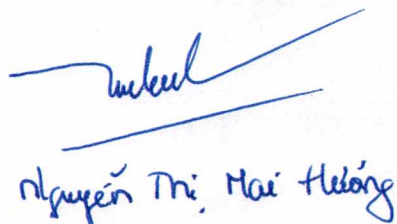 Nguyễn Thị Mai Hương